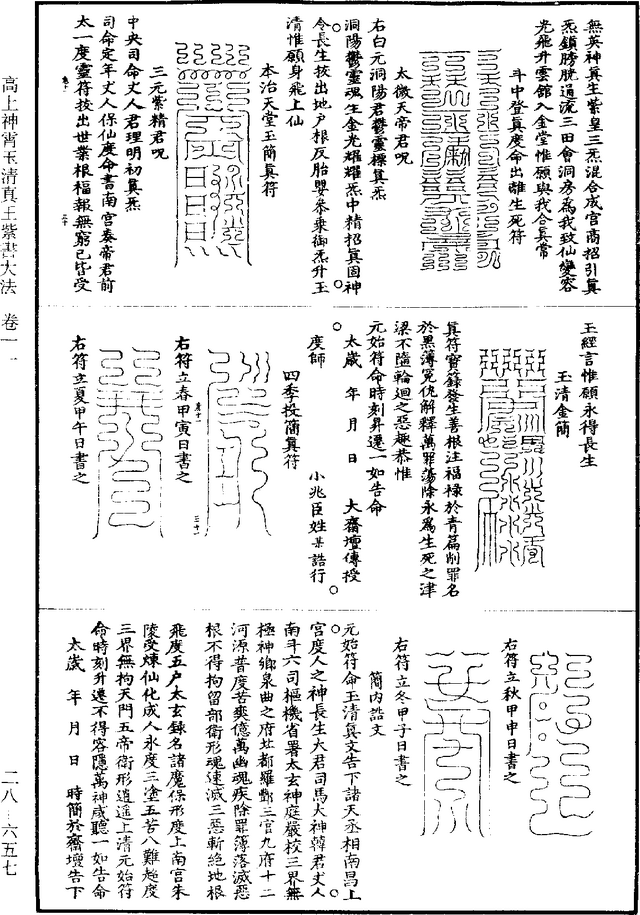 無英神真生紫皇三炁混合成宮高招引真
炁鎖膀胱通流三田會洞房為我致仙變容
光飛升雲館入金堂惟願與我合真常
斗中登真度命出離生死符
太微天帝君呪
右白元洞陽君鬱靈標真炁
洞陽鬱靈魂生金光耀耀炁中精招真固神
令長生按出地戶根反胎嬰參乘御炁升玉
清惟願身飛上仙
本治天堂玉簡真符
三元紫精君呪
中央司命丈人君理明初真炁
司命定年丈人保仙度命書南宮奏帝君前
太一度靈符按出世業根福報無窮已皆受
王經言惟願永得長生
玉清金簡
真符寶籙發生善根注福祿於青篇削罪名
於黑薄冤仇解釋萬罪蕩除永為生死之津
梁不墮輪迴之惡趣恭惟
元始符命時刻昇遷一如告命
太歲 年 月 日 大齋壇傳授
度師 小兆臣姓某誥行
四季投簡真符
右符立春甲寅日書之
右符立夏甲午日書之
右符立秋甲申日書之
右符立冬甲子日書之
簡內誥文
元始符命玉清真文告下諸天丞相南昌上
宮度人之神長生大君司馬大神韓君丈人
南斗六司樞機省署太玄神庭嚴校三界無
極神鄉泉曲之府北都羅酆三官九府十二
河源普度苦爽億萬幽魂疾除罪簿落滅惡
根不得拘留部衛形魂速滅三惡斬絕地根
飛度五戶太玄錄名諸魔保形度上南宮朱
陵受煉仙化成人永度三塗五苦八難超度
三界無拘天門五帝衛形逍遙上清元始符
命時刻升遷不得容隱萬神咸聽一如告命
太歲 年 月 日 時簡於齋壇告下
高上神霄玉清真王紫書大法 卷一一
二八—六五七